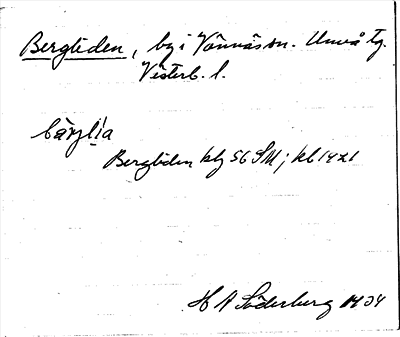 Bergliden, by i Vännäs sn. Umeå tg.
Västerb. l.
bä̀rjlía
Bergliden kbg 56 SM; kb 1421
H A Söderberg 1934